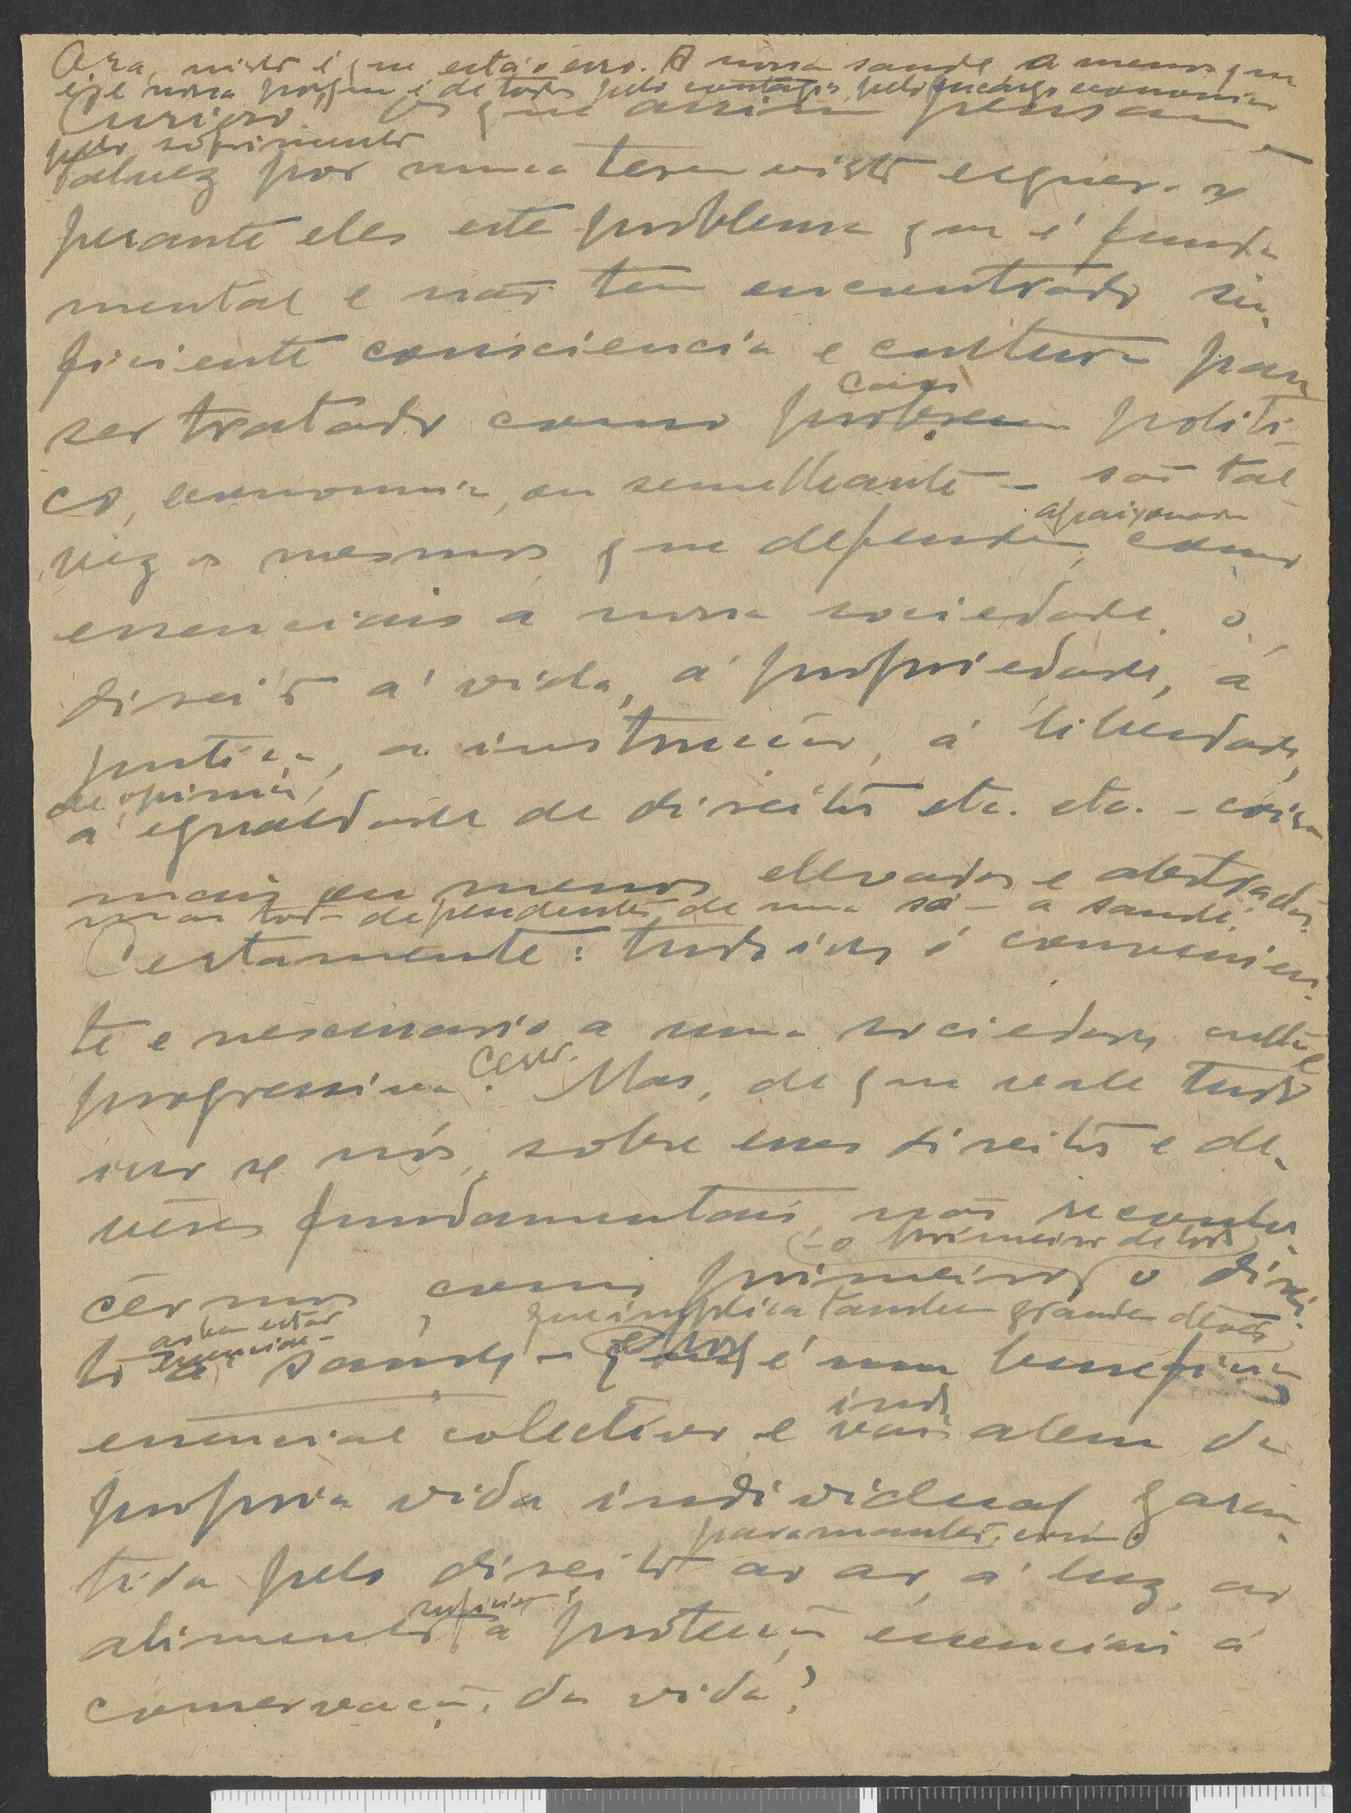 Ora, nisto é que está o erro. A nossa saude é menos que
nossa porque é de todos pelo contagio, pelo encargo economico
pelo sofrimento
Curioso. Os que assim pensam
talvez por nunca terem visto erguer-se
perante eles este problema que é funda
mental e não tem encontrado su-
ficiente consciencia e cultura para
coisa
ser tratado como problema politi-
co, economico, ou semelhante – são tal-
apaixonada
vez os mesmos que defendem, como
essenciais á nossa sociedade o
direito á vida, á propriedade, á
justiça, á instrucção, á liberdade,
de opinião,
á egualdade de direitos etc. etc. – coisas
mais ou menos elevadas e abstractas
mas todas dependentes de uma só – a saude.
Certamente: tudo isso é convenien-
te e necessario a uma sociedade culta e
progressiva. Certo. Mas, de que vale tudo
isso se nós, sobre esses direitos e de-
veres fundamentais, não reconhe-
– o primeiro de todos
cêrmos, como primeiro, o direi-
que implica tambem grandes deveres
ao bem estar
to á saude – que é um beneficio
essencial colectivo e vai alem da
propria vida individual garan-
para manter,
tida pelo direito ao ar, á luz, ao
alimento á protecção essenciais á
conservação da vida?